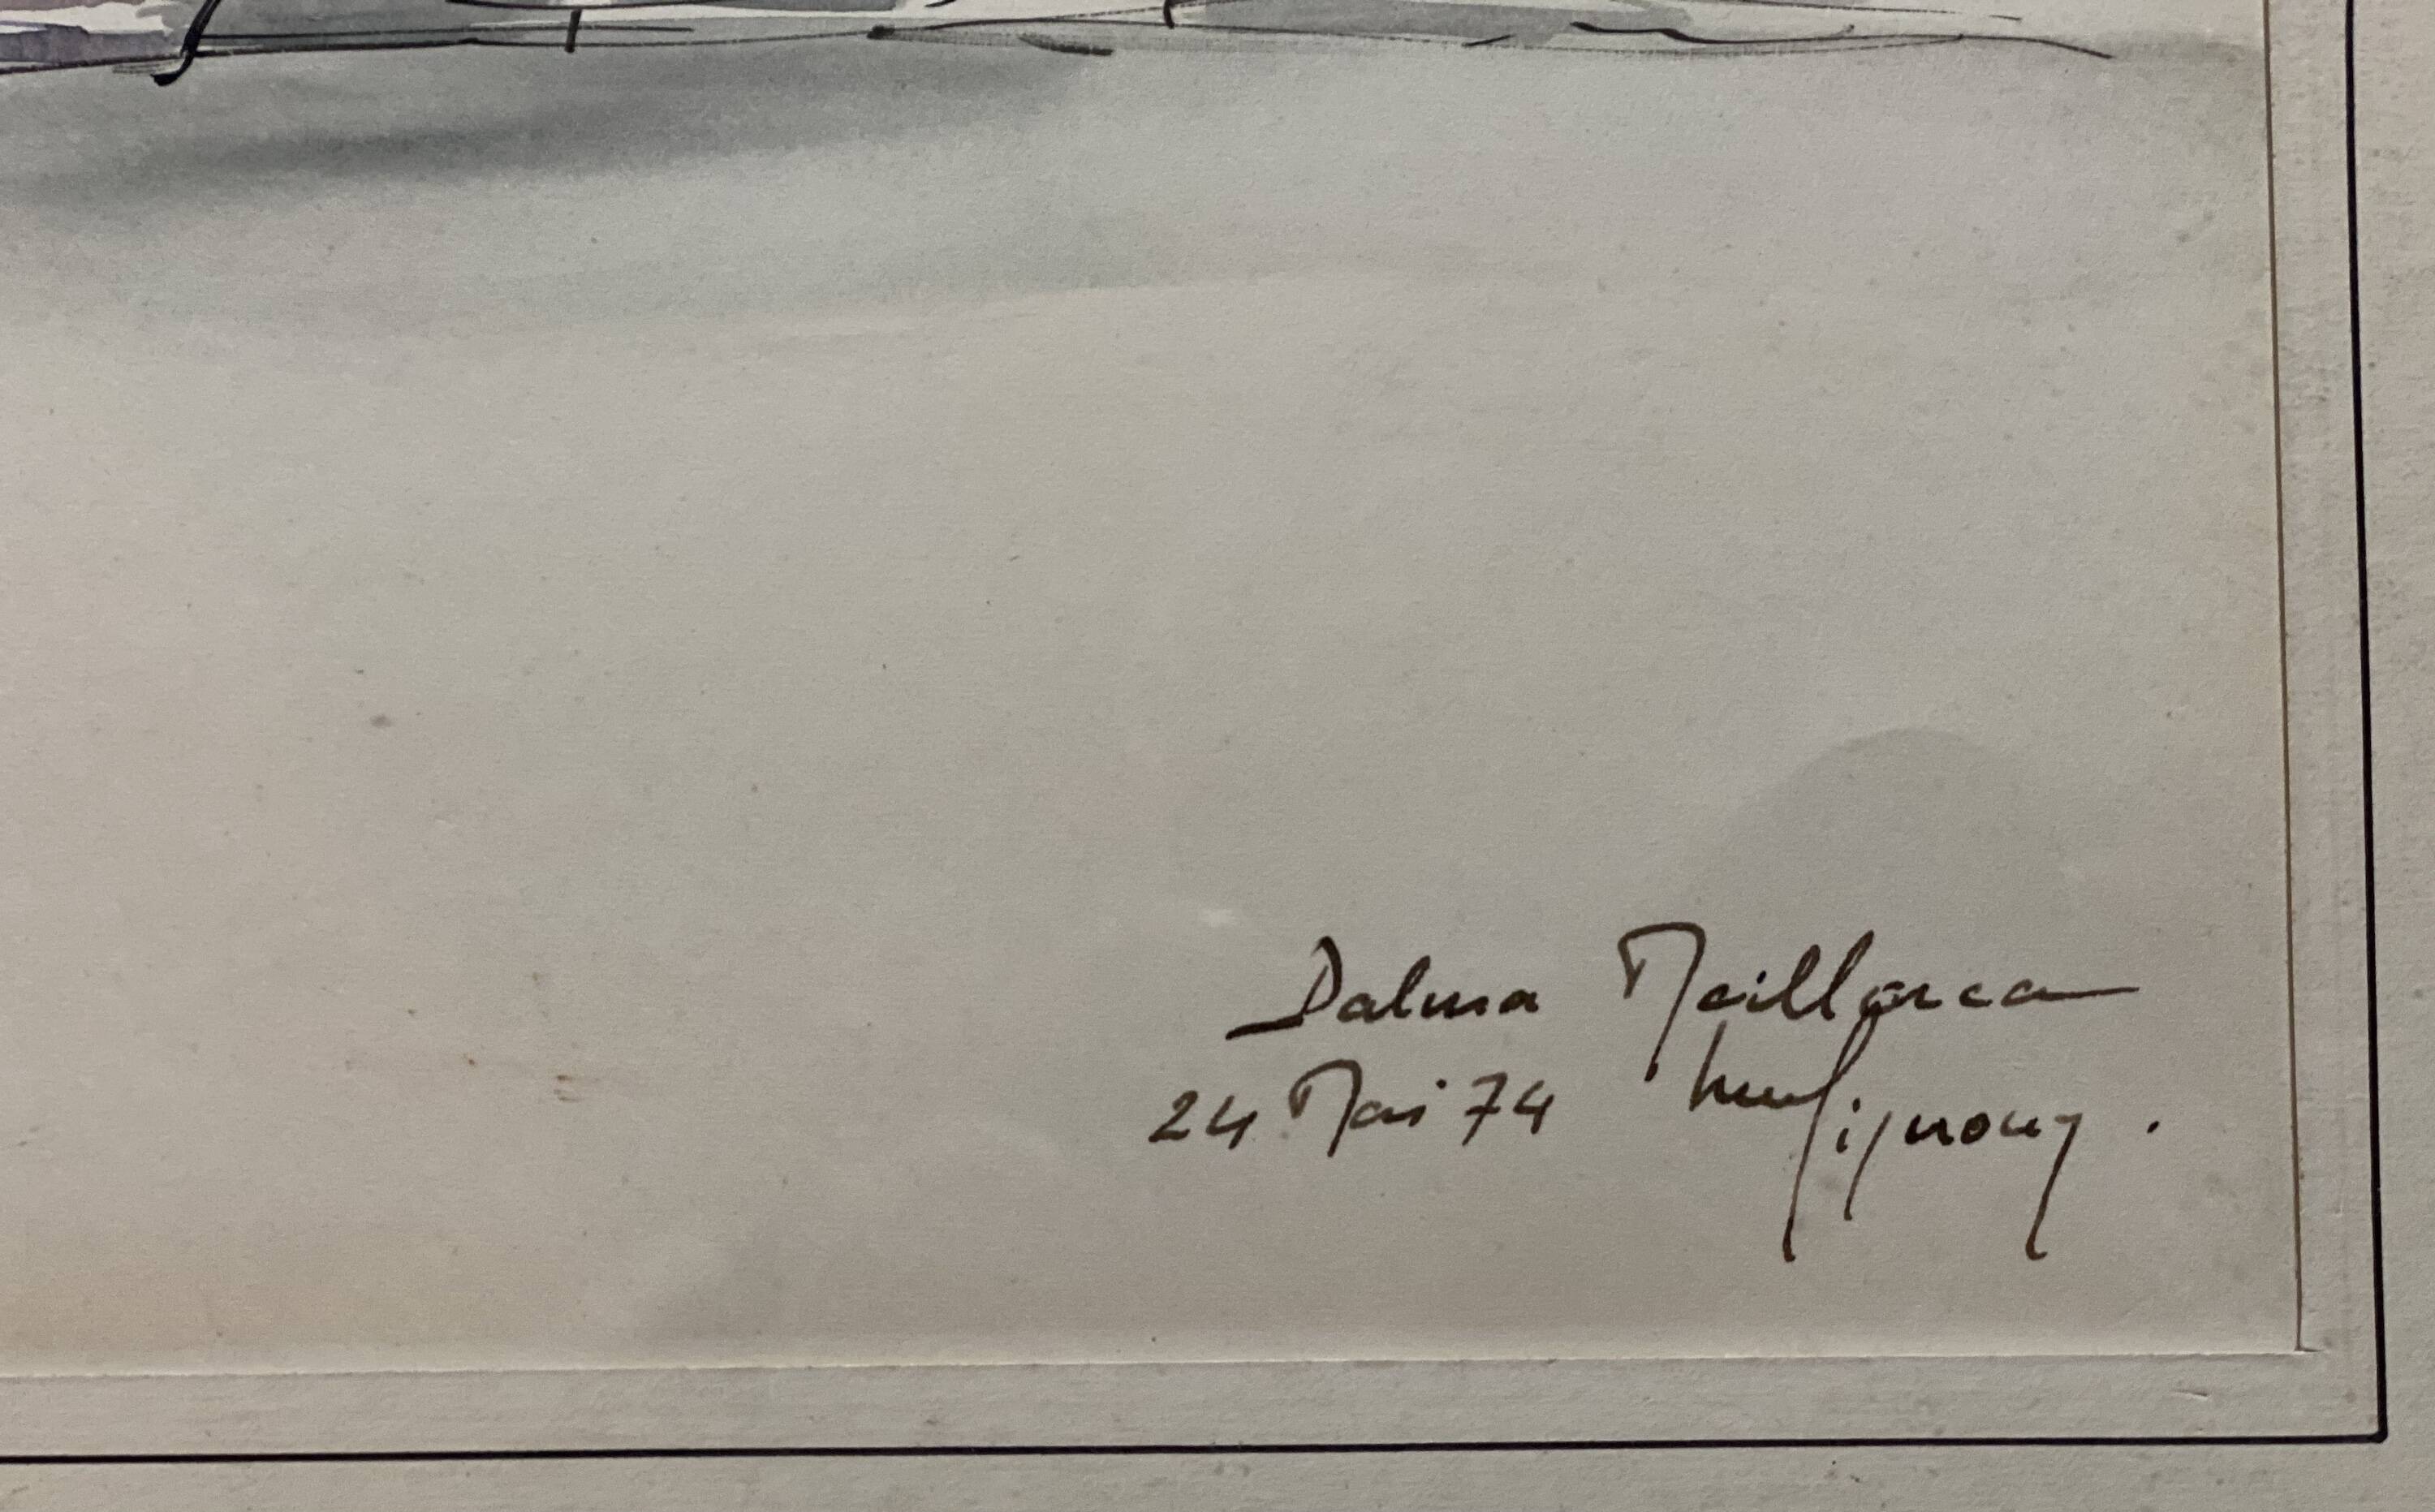 Palma Maillorca
24 Mai 74